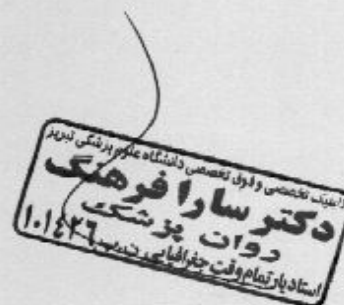 کلینیک تخصصی و فوق تخصصی دانشگاه علوم پزشکی تبریز
دکتر سارا فرهنگ
روان پزشک
استادیار تمام وقت جغرافیایی ن.پ: ۱۰۱۴۲۶